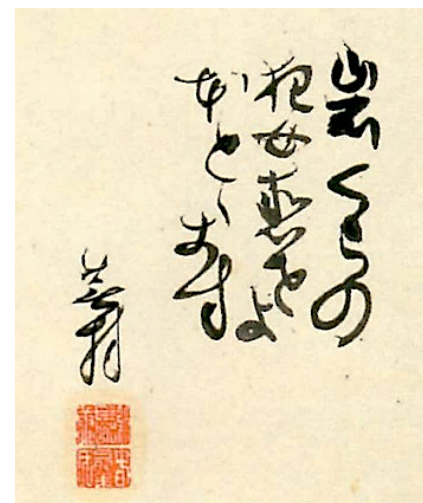 岩くらの
狂女恋せよ
ほとゝきす
蕪村